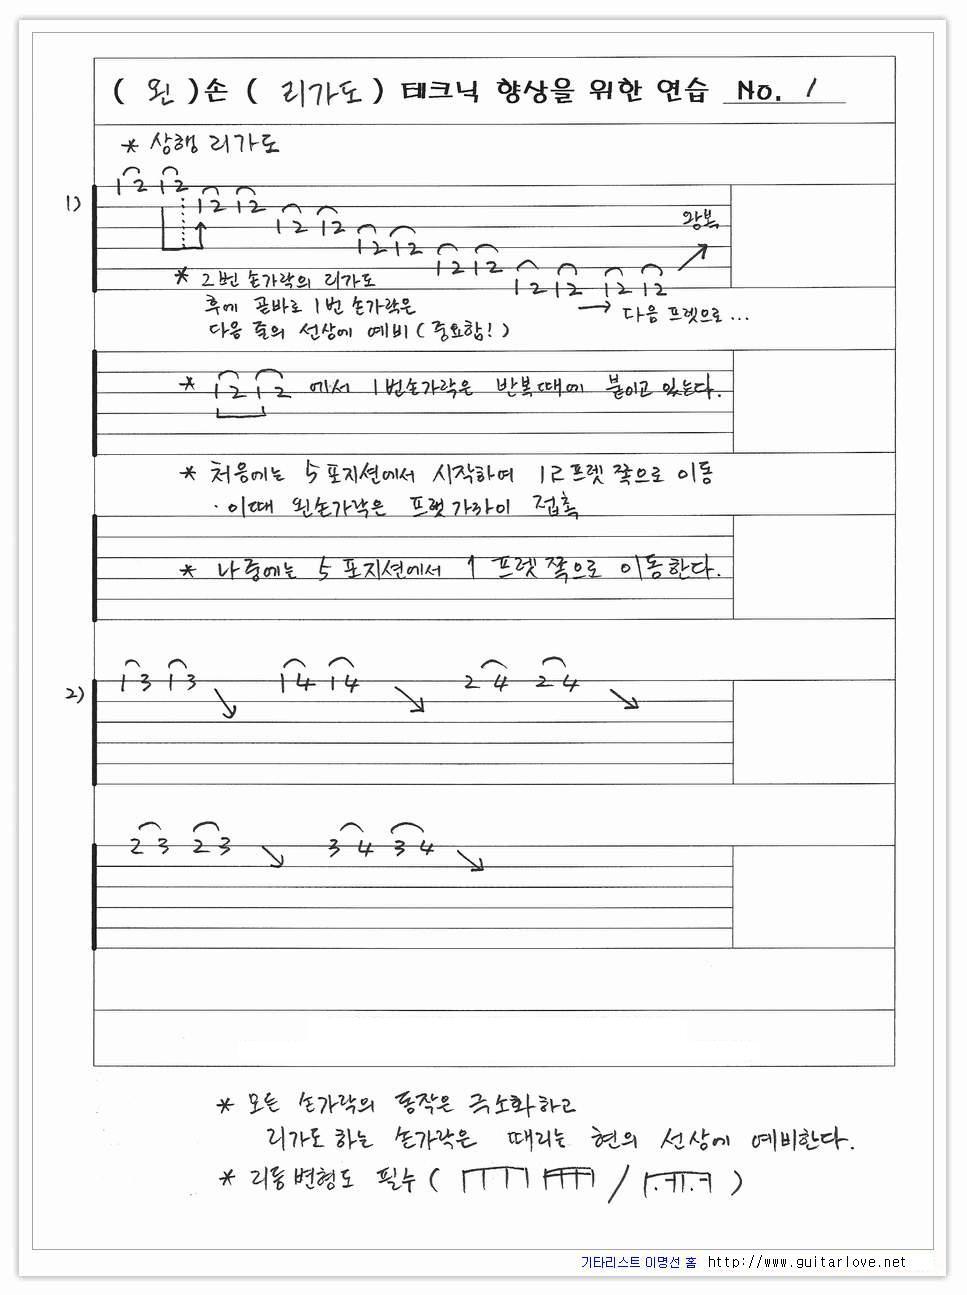 ( 왼 )손 ( 리가도 ) 테크닉 향상을 위한 연습 No. 1
* 상행 리가도
1) 1 2 1 2 1 2 1 2 1 2 1 2 1 2 1 2 1 2 1 2 1 2 1 2 1 2 1 2 왕복
* 2번 손가락의 리가도
후에 곧바로 1번 손가락은
다음 줄의 선상에 예비 ( 중요함! )
→ 다음 프렛으로 ...
* 1 2 1 2 에서 1번손가락은 반복때에 붙이고 있는다.
* 처음에는 5 포지션에서 시작하여 12프렛 쪽으로 이동
· 이때 왼손가락은 프렛 가까이 접촉
* 나중에는 5 포지션에서 1 프렛 쪽으로 이동한다.
2) 1 3 1 3 1 4 1 4 2 4 2 4
2 3 2 3 3 4 3 4
* 모든 손가락의 동작은 극소화하고
리가도 하는 손가락은 때리는 현의 선상에 예비한다.
* 리듬변형도 필수 ( / )
기타리스트 이명선 홈 http://www.guitarlove.net